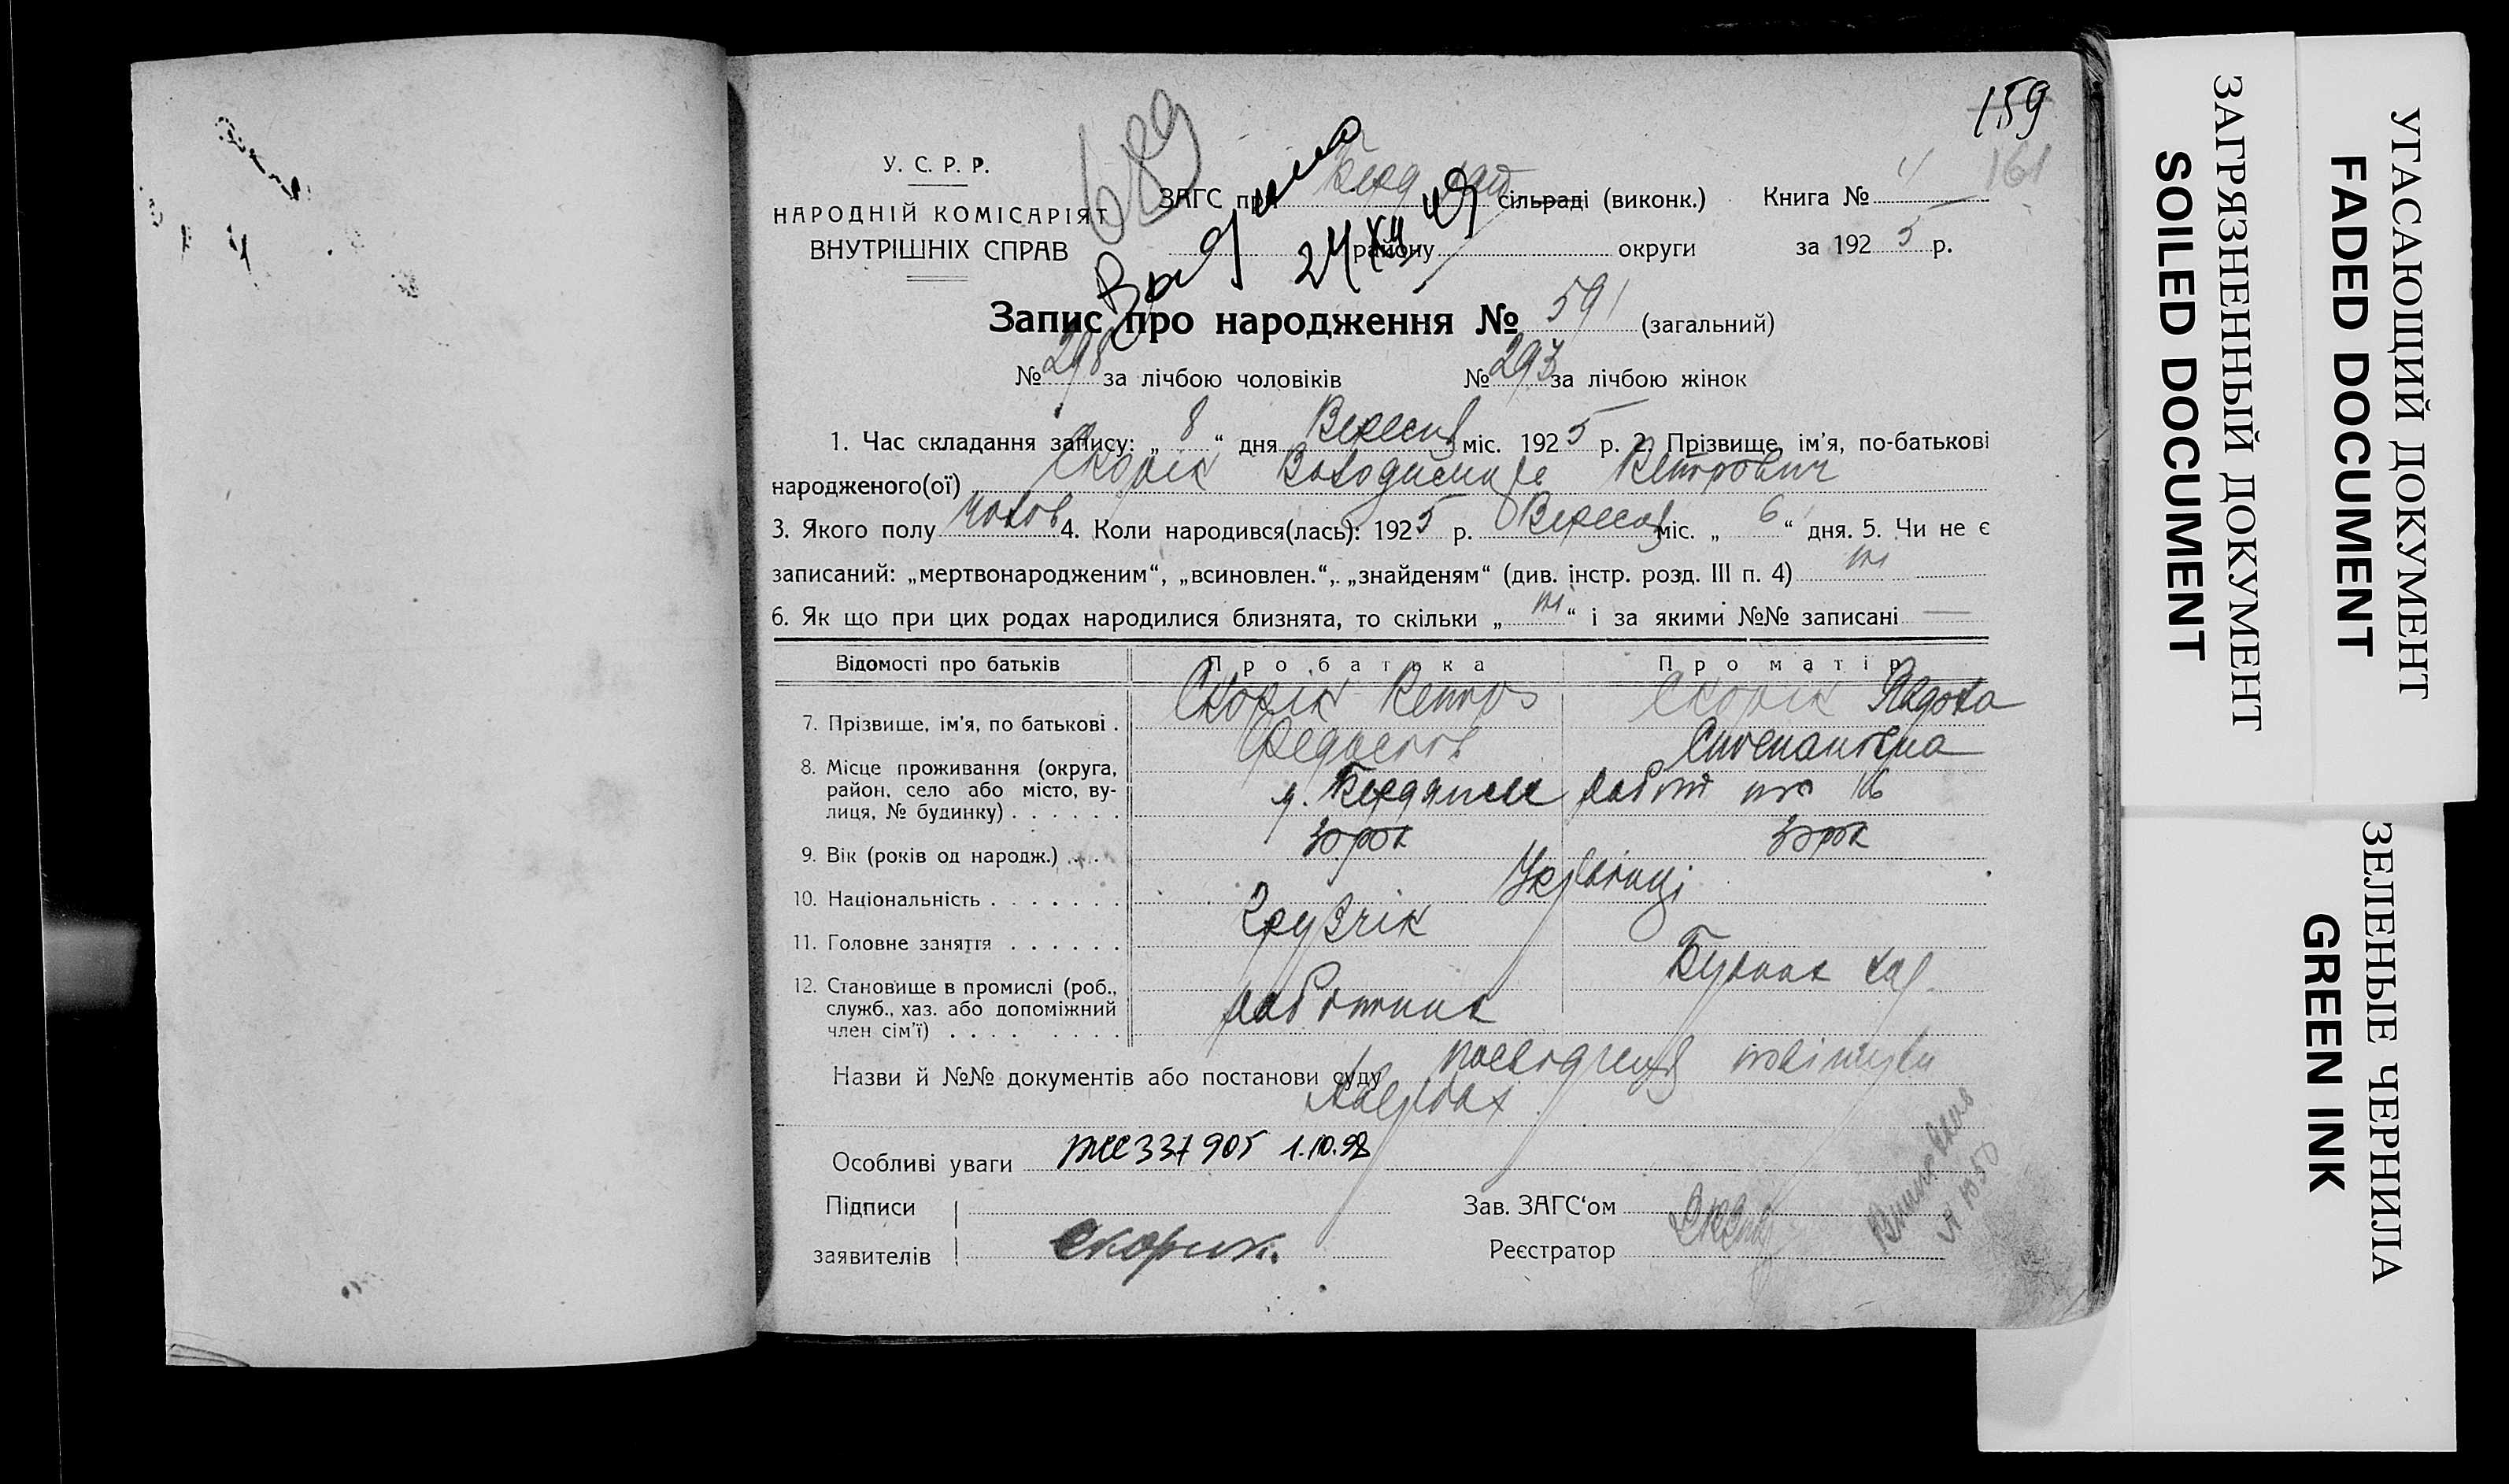 159
161
689
У. С. Р. Р.
НАРОДНІЙ КОМІСАРІЯТ
ВНУТРІШНІХ СПРАВ
ЗАГС при сільраді (виконк.) Книга № 4
району округи за 1925 р.
24
Запис про народження № 591 (загальний)
№ 298 за лічбою чоловіків № 293 за лічбою жінок
1. Час складання запису: „ 8 “ дня Вересня міс. 1925 р. 2. Прізвище, ім’я, по-батькові
народженого(ої) Скорік Володимир Петрович
3. Якого полу чолов 4. Коли народився(лась): 1925 р. Вересня міс. „ 6 “ дня. 5. Чи не є
записаний: „мертвонародженим“, „всиновлен.“, „знайденям“ (див. інстр. розд. III п. 4) ні
6. Як що при цих родах народилися близнята, то скільки „ ні “ і за якими №№ записані —
Відомості про батьків Про батька Про матір
7. Прізвище, ім’я, по батькові . Скорік Петро Скорік Явдоха
Федосієв Степановна
8. Місце проживання (округа,
район, село або місто, ву-
лиця, № будинку) . . . . . . м. Бердянськ 16
9. Вік (років од народж.) . . . 30 рок 30 рок
10. Національність . . . . . . . Українці
11. Головне заняття . . . . . . Грузчік
12. Становище в промислі (роб.,
служб., хаз. або допоміжний
член сім’ї) . . . . . . . . работник
Назви й №№ документів або постанови суду посвідчення
Особливі уваги 337905 1.10.92
Підписи
заявителів Скорик.
Зав. ЗАГС‘ом
Реєстратор
ЗАГРЯЗНЕННЫЙ ДОКУМЕНТ
SOILED DOCUMENT
УГАСАЮЩИЙ ДОКУМЕНТ
FADED DOCUMENT
ЗЕЛЕНЫЕ ЧЕРНИЛА
GREEN INK